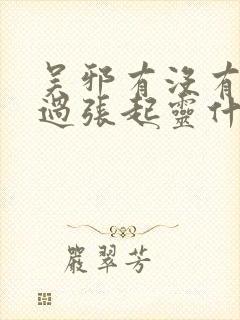 吴邪有没有
过張起靈什
嚴翠芳